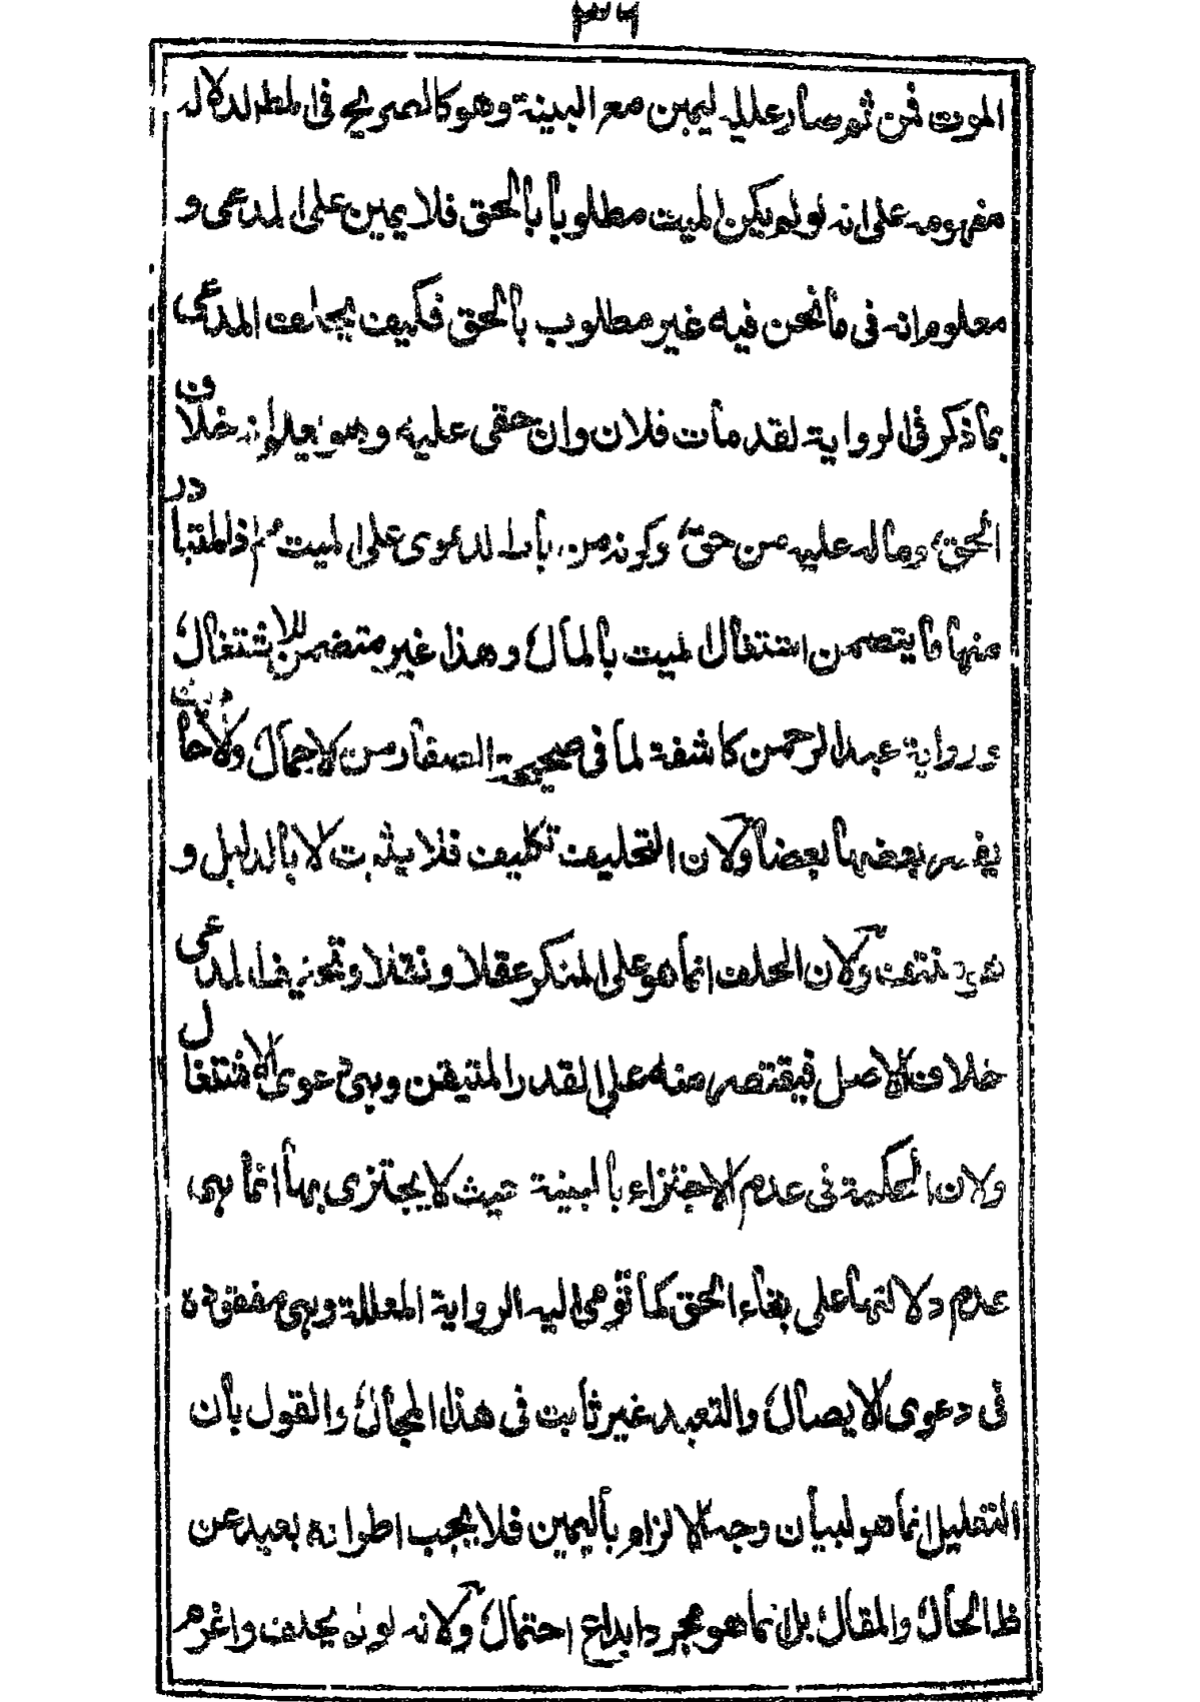 ٣٦
الموت فمن ثم صار عليه ليمين مع البينة وهو كالصريح فى المط لدلالة
مفهومه على انه لو لم يكن الميت مطلوبا بالحق فلا يمين على المدعى و
معلوم انه فى ما نحن فيه غير مطلوب بالحق فكيف يحلف المدعى
بما ذكر فى الرواية لقد مات فلان وان حقى عليه وهو يعلم انه خلاف
الحق وماله عليه من حق وكونه من باب الدعوى على الميت مم اذ المتبادر
منها ما يتضمن اشتغال الميت بالمال وهذا غير متضمن للاشتغال
ورواية عبد الرحمن كاشفة لما فى صحيحة الصفار من الاجمال والاحا
يفسر بعضها بعضا ولان التحليف تكليف فلا يثبت الا بالدليل و
هو منتف ولان الحلف انما هو على المنكر عقلا ونقلا وتحليف المدعى
خلاف الاصل فيقتصر منه على القدر المتيقن وهى دعوى الاشتغال
ولان الحكمة فى عدم الاجتزاء بالبينة حيث لا يجتزى بها انما هى
عدم دلالتها على بقاء الحق كما تؤمى اليه الرواية المعللة وهى مفقودة
فى دعوى الايصال والتعبد غير ثابت فى هذا المجال والقول بان
التعليل انما هو لبيان وجه الالزام باليمين فلا يجب اطرادة بعيد عن
ظ الحال والمقال بل انما هو مجرد ابداع احتمال ولانه لو لم يحلف واغرم